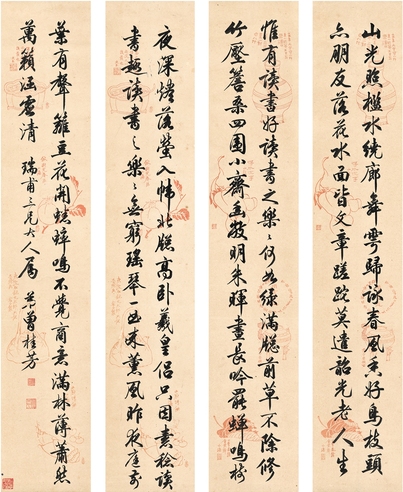 山光照檻水繞廊舞雩歸詠春風香好鳥枝頭
亦朋友落花水面皆文章蹉跎莫遣韶光老人生
惟有讀書好讀書之樂〻何如綠滿牕前草不除修
竹壓簷桑四圍小齋幽敞明朱暉晝長吟罷蟬鳴樹
夜深燼落螢入幃北牕高臥羲皇侶只因素稔讀
書趣讀書之樂〻無窮瑤琴一曲來薰風昨夜庭前
葉有聲籬豆花開蟋蟀鳴不覺商意滿林薄蕭然
萬籟涵虛清 瑞甫三兄大人屬 弟曾桂芳